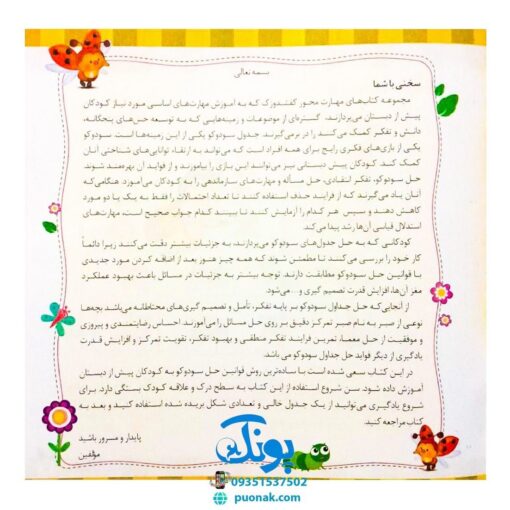 بسمه تعالی
سخنی با شما
مجموعه کتاب‌های مهارت محور کفشدوزک که به آموزش مهارت‌های اساسی مورد نیاز کودکان
پیش از دبستان می‌پردازند، گستره‌ای از موضوعات و زمینه‌هایی که به توسعه حس‌های پنجگانه،
دانش و تفکر کمک می‌کنند را در برمی‌گیرند. جدول سودوکو یکی از این زمینه‌ها است. سودوکو
یکی از بازی‌های فکری رایج برای همه افراد است که می‌تواند به ارتقاء توانایی‌های شناختی آنان
کمک کند. کودکان پیش دبستانی نیز می‌توانند این بازی را بیاموزند و از فواید آن بهره‌مند شوند.
حل سودوکو، تفکر انتقادی، حل مسأله و مهارت‌های سازماندهی را به کودکان می‌آموزد. هنگامی‌که
آنان یاد می‌گیرند که از فرایند حذف استفاده کنند تا تعداد احتمالات را فقط به یک یا دو مورد
کاهش دهند و سپس هر کدام را آزمایش کنند تا ببینند کدام جواب صحیح است، مهارت‌های
استدلال قیاسی آن‌ها رشد پیدا می‌کند.
کودکانی که به حل جدول‌های سودوکو می‌پردازند، به جزئیات بیشتر دقت می‌کنند زیرا دائماً
کار خود را بررسی می‌کنند تا مطمئن شوند که همه چیز هنوز بعد از اضافه کردن مورد جدیدی
با قوانین حل سودوکو مطابقت دارند. توجه بیشتر به جزئیات در مسائل باعث بهبود عملکرد
مغز آن‌ها، افزایش قدرت تصمیم گیری و ... می‌شود.
از آنجایی که حل جداول سودوکو بر پایه تفکر، تأمل و تصمیم گیری‌های محتاطانه می‌باشد بچه‌ها
نوعی از صبر به نام صبر تمرکز دقیق بر روی حل مسائل را می‌آموزند. احساس رضایتمندی و پیروزی
و موفقیت از حل معما، تمرین فرایند تفکر منطقی و بهبود تفکر، تقویت تمرکز و افزایش قدرت
یادگیری از دیگر فواید حل جداول سودوکو می باشد.
در این کتاب سعی شده است با ساده‌ترین روش قوانین حل سودوکو به کودکان پیش از دبستان
آموزش داده شود. سن شروع استفاده از این کتاب به سطح درک و علاقه کودک بستگی دارد. برای
شروع یادگیری می‌توانید از یک جدول خالی و تعدادی شکل بریده شده استفاده کنید و بعد به
کتاب مراجعه کنید.
پایدار و مسرور باشید
مؤلفین
پونک
09351537502
puonak.com